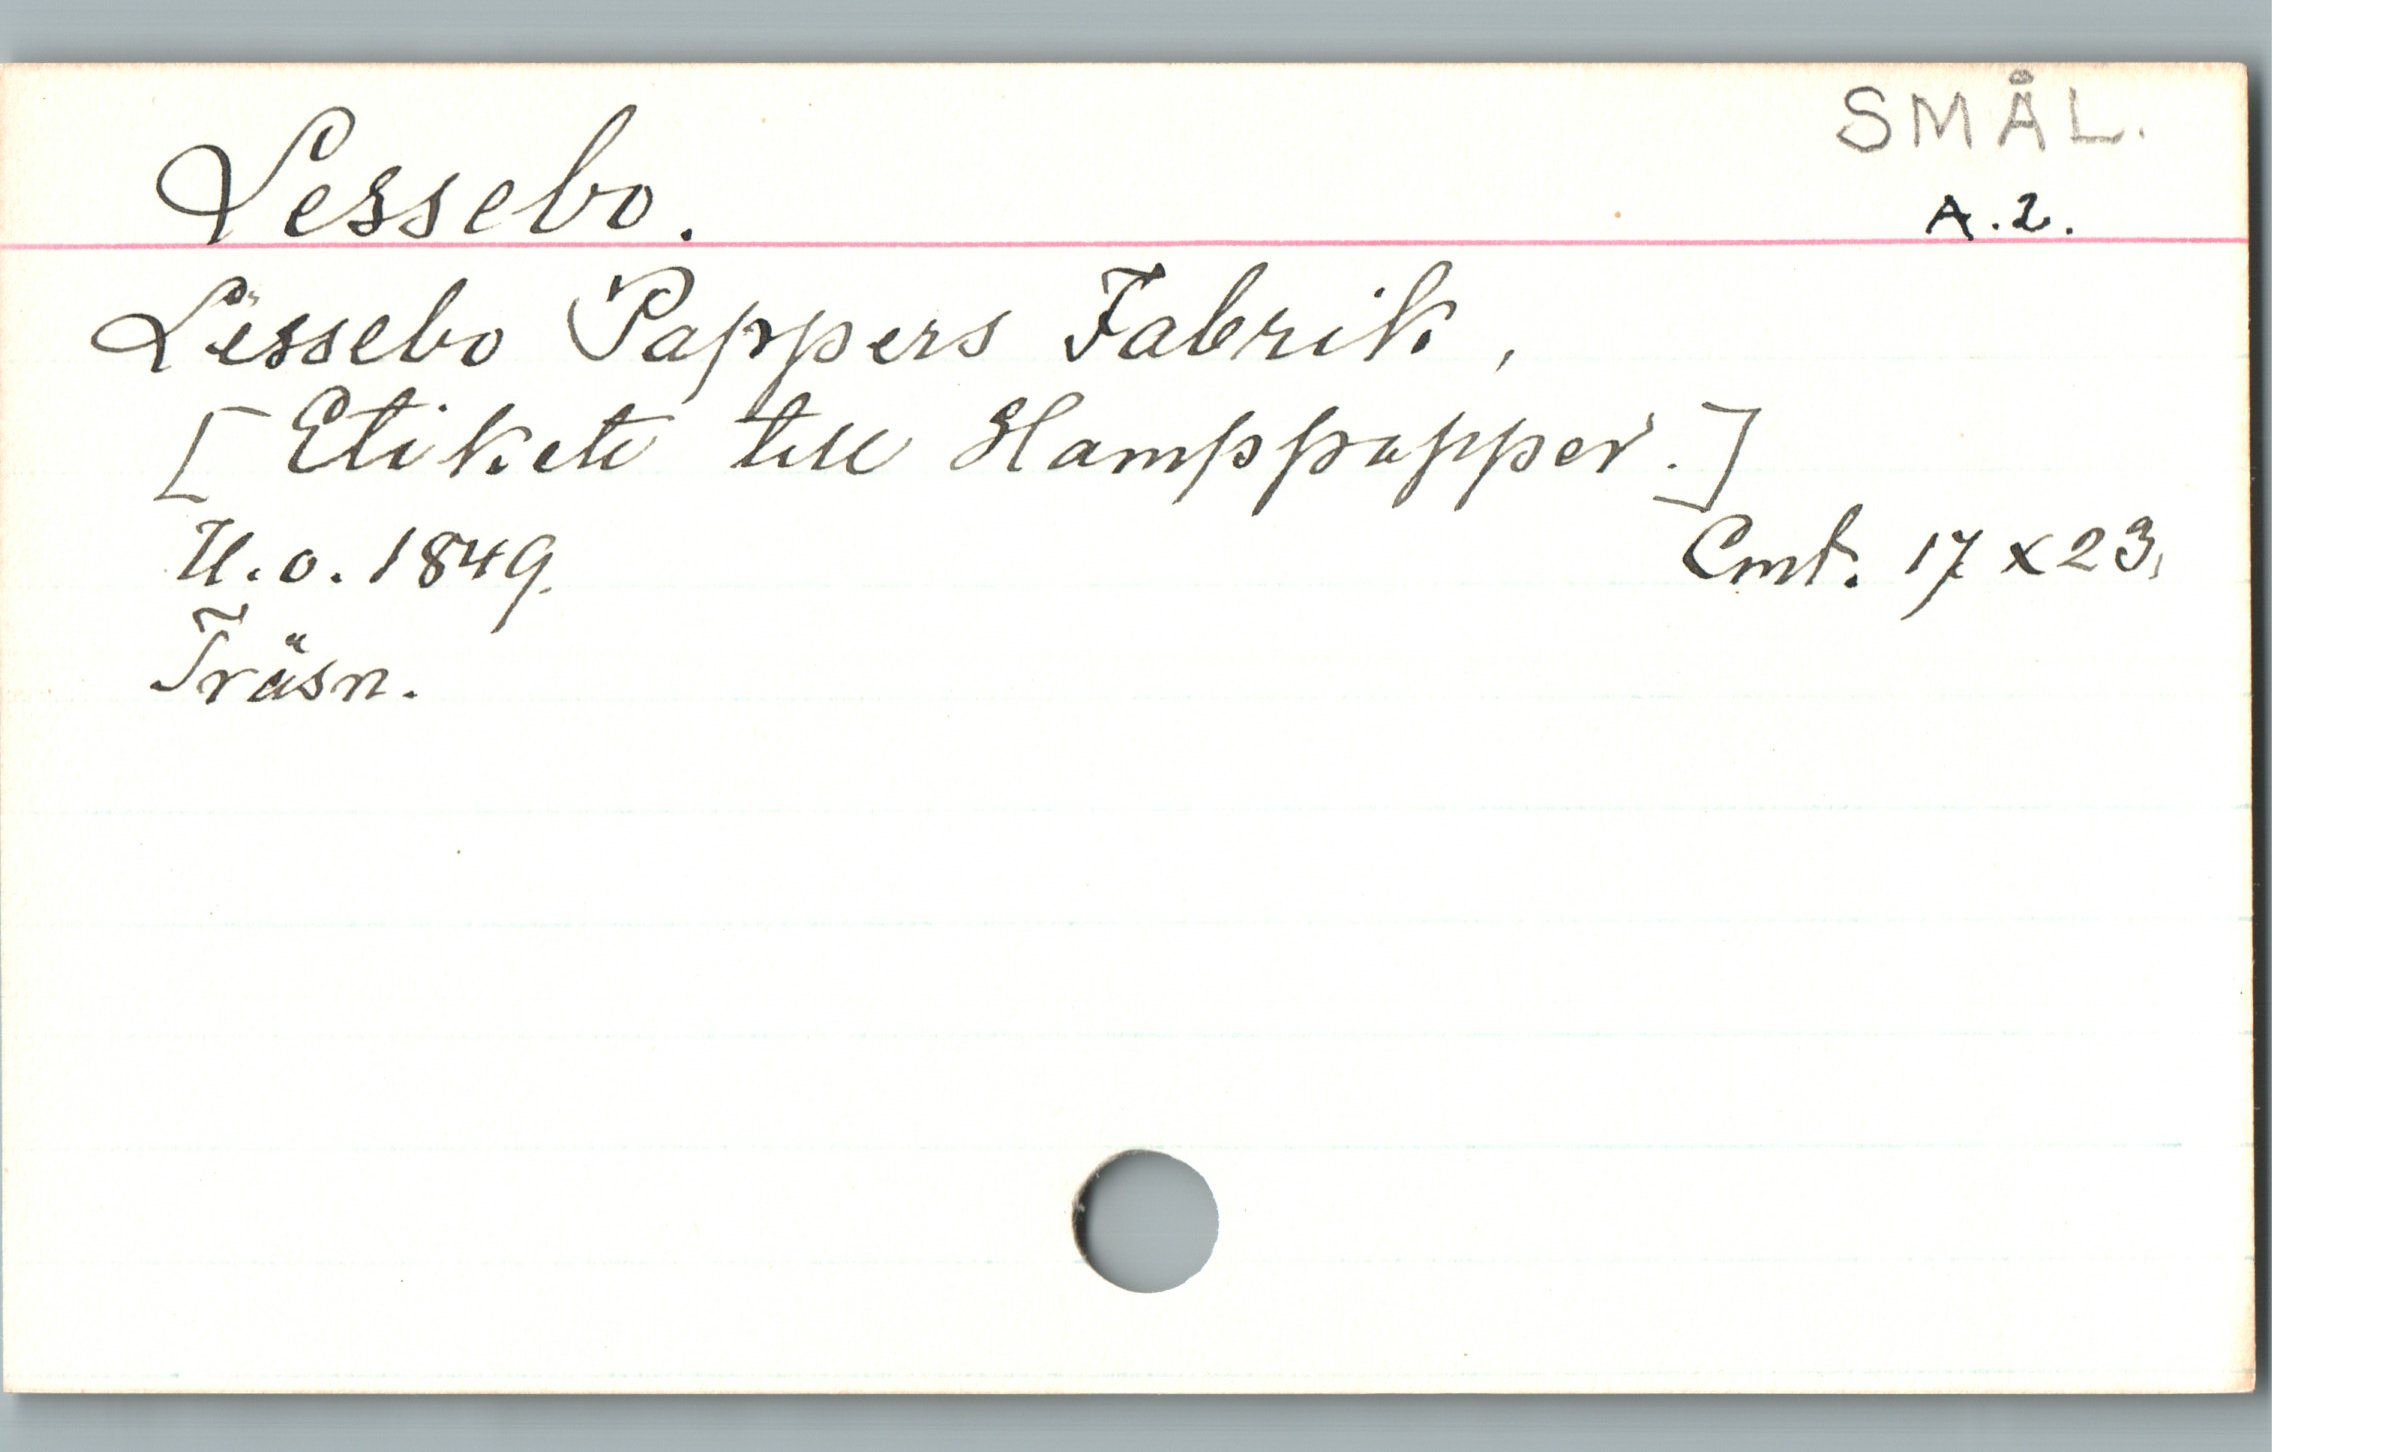 SMÅL.
Lessebo.
A.2.
Lessebo Pappers Fabrik,
[Etikett till Hamppapper.]
U.o. 1849.
Cmt. 17 x 23.
Träsn.